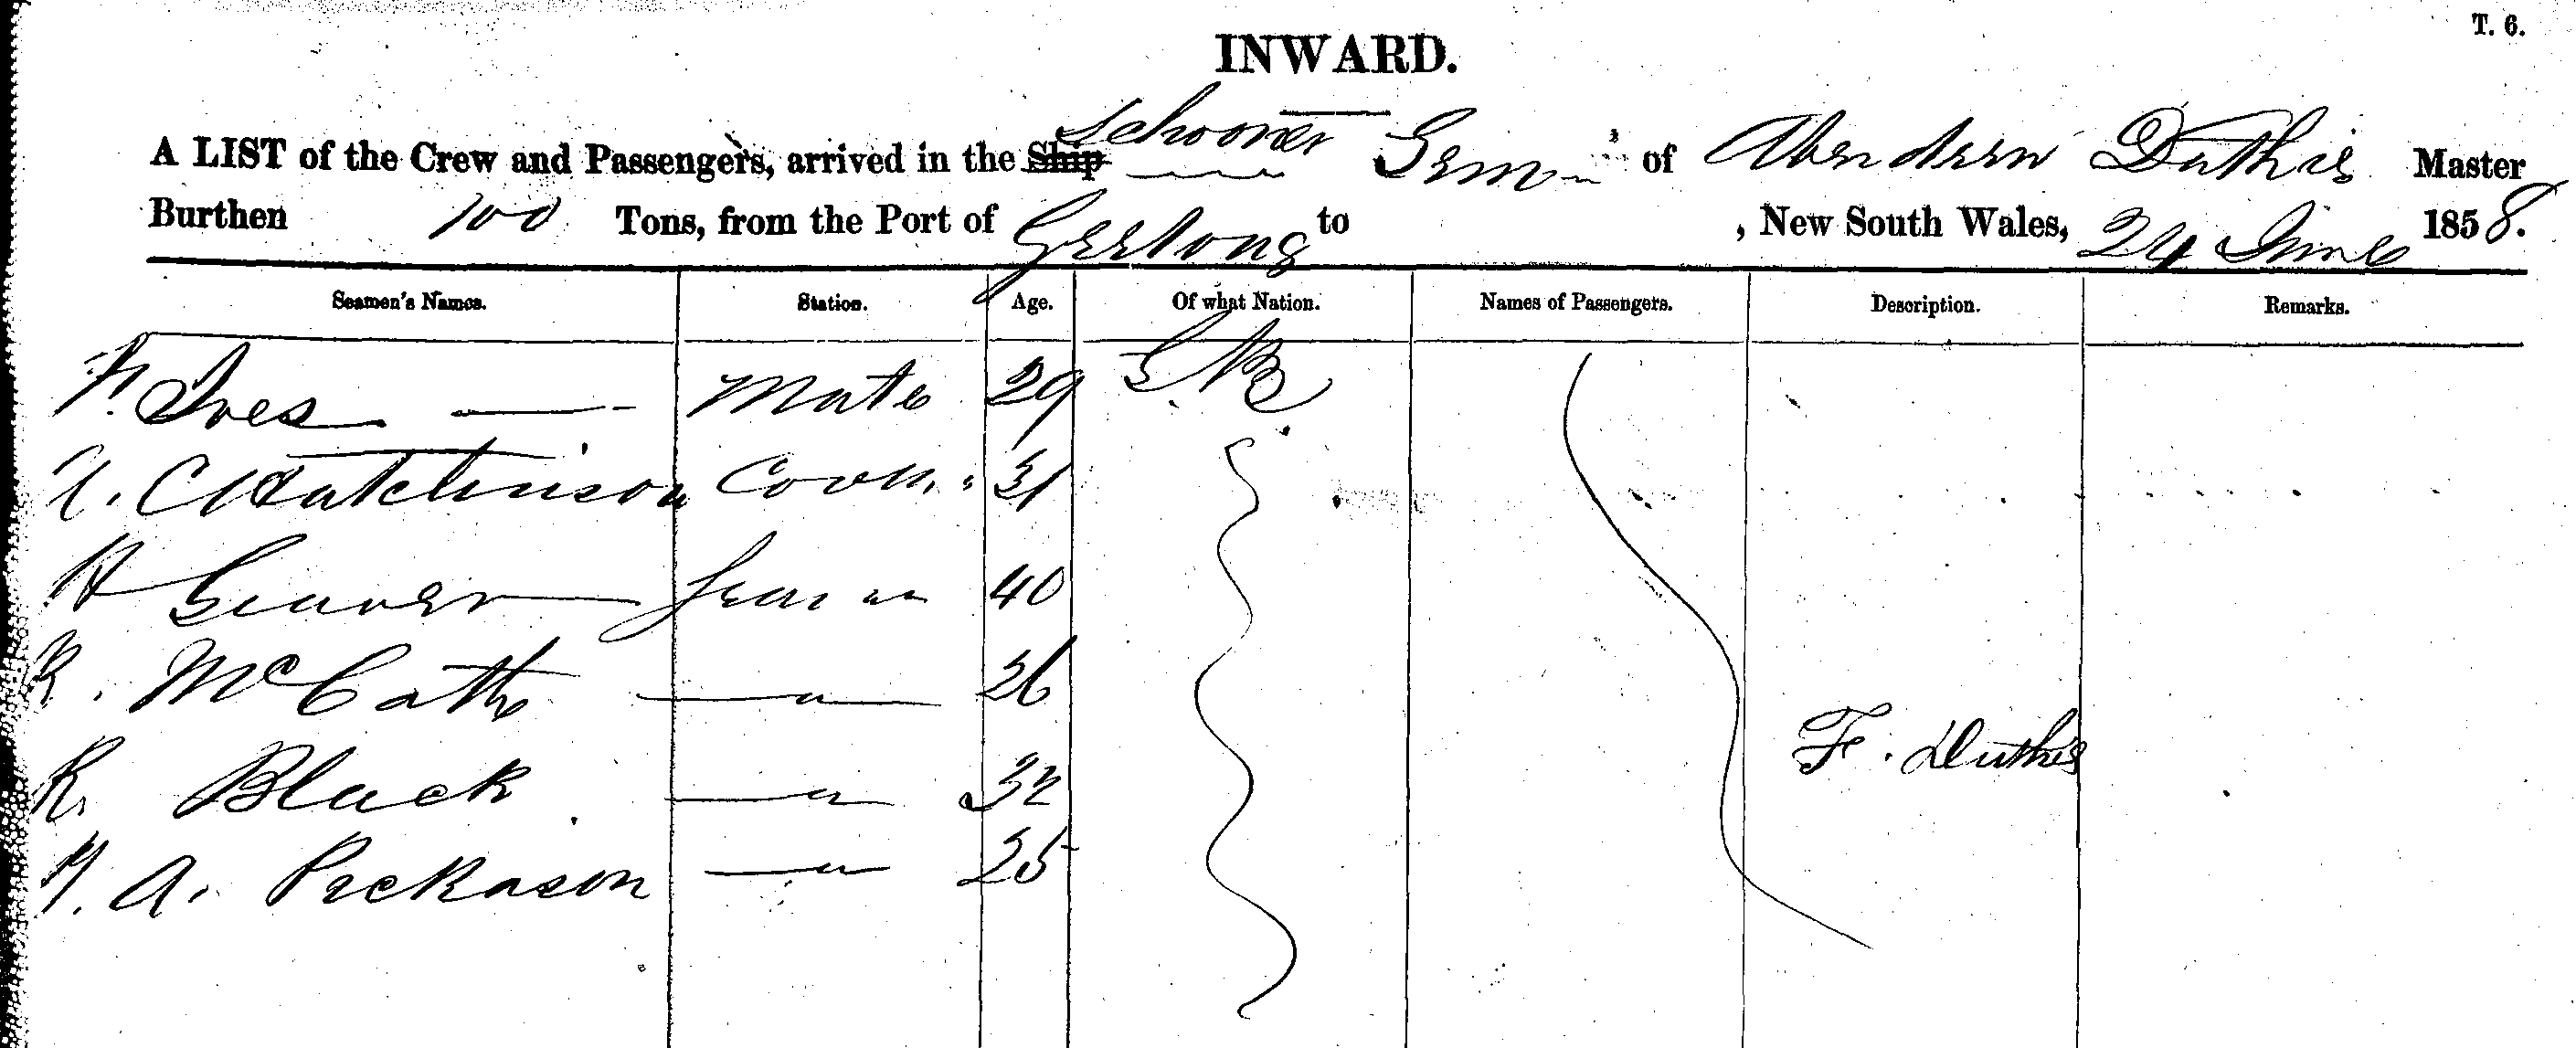 T. 6.
INWARD.
A LIST of the Crew and Passengers, arrived in the Ship Schooner Gem of Aberdeen Duthie Master
Burthen 100 Tons, from the Port of Geelong to , New South Wales, 24 June 1858.
Seamen's Names. Station. Age. Of what Nation. Names of Passengers. Description. Remarks.
Ives Mate 29
Hutchinson Cook 31
H Seaman 40
McCath " 26
R. Black " 32
A. Peckason " 25
F. Duthie